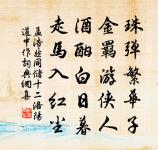 珠弹繁华子
金羁游侠人
酒酣白日暮
走马入红尘
孟浩然同储十二洛阳
道中作词典网集